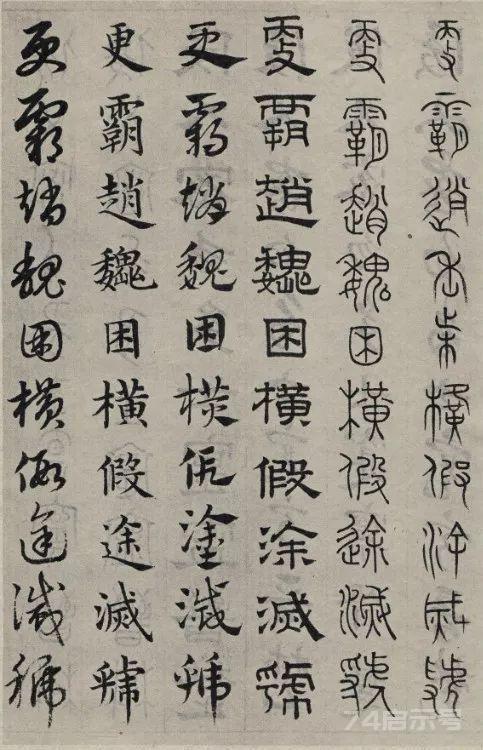 更霸趙魏困橫假涂滅虢
更霸趙魏困橫假途滅虢
更霸趙魏困橫假涂滅虢
更霸趙魏困橫假塗滅虢
更霸趙魏困橫假途滅虢
更霸趙魏困橫假途滅虢
74启示号